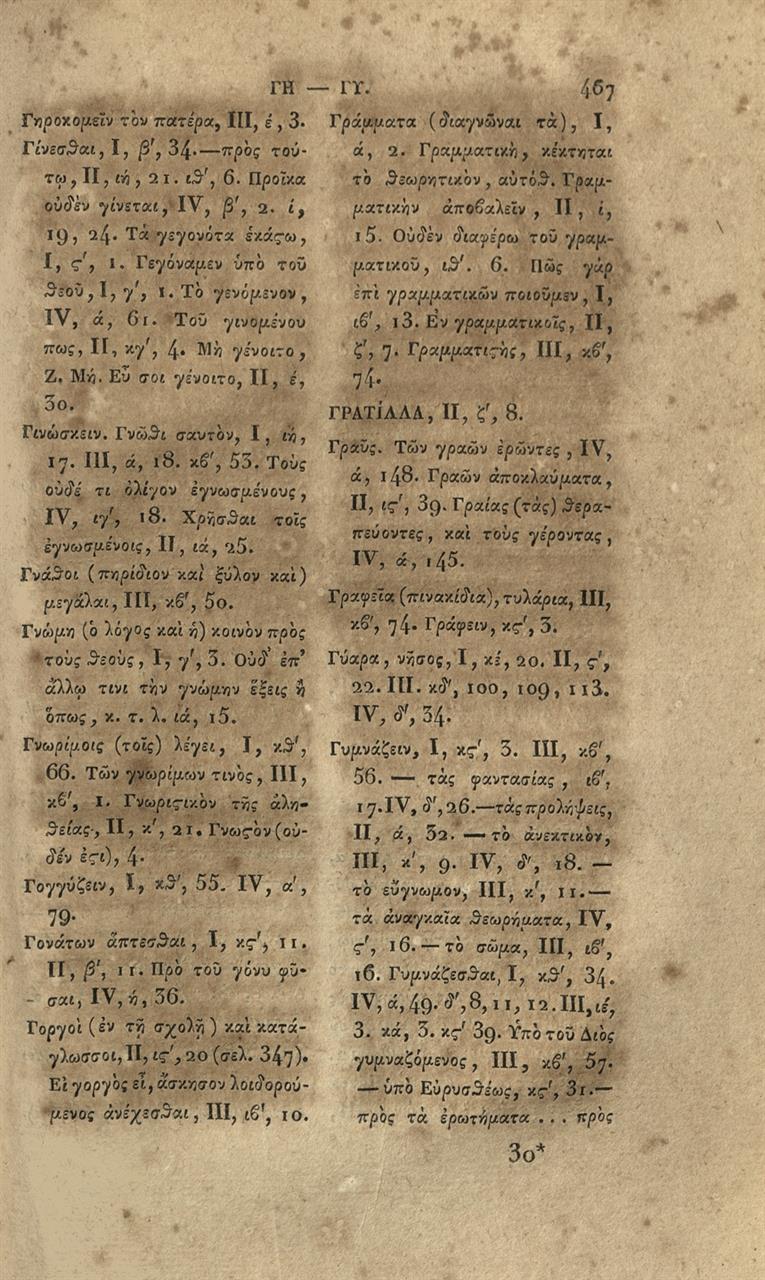 ΓΗ — ΓΥ. 467
Γηροκομεῖν τὸν πατέρα, III, έ, 3.
Γίνεσθαι, I, β', 34.—πρὸς τού-
τῳ, II, ιή, 21. ιθ', 6. Προῖκα
οὐδὲν γίνεται, IV, β', 2. ί,
19, 24. Τὰ γεγονότα ἑκάϛῳ,
I, ϛ', 1. Γεγόναμεν ὑπὸ τοῦ
Θεοῦ, I, γ', 1. Τὸ γενόμενον,
IV, ά, 61. Τοῦ γινομένου
πως, II, κγ', 4. Μὴ γένοιτο,
Ζ. Μή. Εὖ σοι γένοιτο, II, έ,
30.
Γινώσκειν. Γνῶθι σαυτὸν, I, ιή,
17. III, ά, 18. κβ', 53. Τοὺς
οὐδέ τι ὀλίγον ἐγνωσμένους,
IV, ιγ', 18. Χρῆσθαι τοῖς
ἐγνωσμένοις, II, ιά, 25.
Γνάθοι (πηρίδιον καὶ ξύλον καὶ)
μεγάλαι, III, κβ', 50.
Γνώμη (ὁ λόγος καὶ ἡ) κοινὸν πρὸς
τοὺς θεοὺς, I, γ', 3. Οὐδ' ἐπ'
ἄλλῳ τινι τὴν γνώμην ἕξεις ἢ
ὅπως, κ. τ. λ. ιά, 15.
Γνωρίμοις (τοῖς) λέγει, I, κθ',
66. Τῶν γνωρίμων τινὸς, III,
κβ', 1. Γνωριϛικὸν τῆς ἀλη-
θείας, II, κ', 21. Γνωϛὸν (οὐ-
δέν ἐϛι), 4.
Γογγύζειν, I, κθ', 55. IV, α',
79.
Γονάτων ἅπτεσθαι, I, κϛ', 11.
II, β', 11. Πρὸ τοῦ γόνυ φῦ-
σαι, IV, ή, 36.
Γοργοὶ (ἐν τῇ σχολῇ) καὶ κατά-
γλωσσοι, II, ιϛ', 20 (σελ. 347).
Εἰ γοργὸς εἶ, ἄσκησον λοιδορού-
μενος ἀνέχεσθαι, III, ιβ', 10.
Γράμματα (διαγνῶναι τὰ), I,
ά, 2. Γραμματικὴ, κέκτηται
τὸ θεωρητικὸν, αὐτόθ. Γραμ-
ματικὴν ἀποβαλεῖν, II, ί,
15. Οὐδὲν διαφέρω τοῦ γραμ-
ματικοῦ, ιθ'. 6. Πῶς γάρ
ἐπὶ γραμματικῶν ποιοῦμεν, I,
ιβ', 13. Εν γραμματικοῖς, II,
ζ', 7. Γραμματιϛὴς, III, κβ',
74.
ΓΡΑΤΙΛΛΑ, II, ζ', 8.
Γραῦς. Τῶν γραῶν ἐρῶντες, IV,
ά, 148. Γραῶν ἀποκλαύματα,
II, ιϛ', 39. Γραίας (τὰς) θερα-
πεύοντες, καὶ τοὺς γέροντας,
IV, ά, 145.
Γραφεῖα (πινακίδια), τυλάρια, III,
κβ', 74. Γράφειν, κϛ', 3.
Γύαρα, νῆσος, I, κέ, 20. II, ϛ',
22. III. κδ', 100, 109, 113.
IV, δ', 34.
Γυμνάζειν, I, κϛ', 3. III, κβ',
56. — τὰς φαντασίας, ιβ',
17. IV, δ', 26.—τὰς προλήψεις,
II, ά, 32. — τὸ ἀνεκτικὸν,
III, κ', 9. IV, δ', 18. —
τὸ εὔγνωμον, III, κ', 11.—
τὰ ἀναγκαῖα θεωρήματα, IV,
ϛ', 16.—τὸ σῶμα, III, ιβ',
16. Γυμνάζεσθαι, I, κθ', 34.
IV, ά, 49. δ', 8, 11, 12. III, ιέ,
3. κά, 3. κϛ' 39. Ὑπὸ τοῦ Διὸς
γυμναζόμενος, III, κβ', 57.
—ὑπὸ Εὐρυσθέως, κϛ', 31.—
πρὸς τὰ ἐρωτήματα ... πρὸς
30*